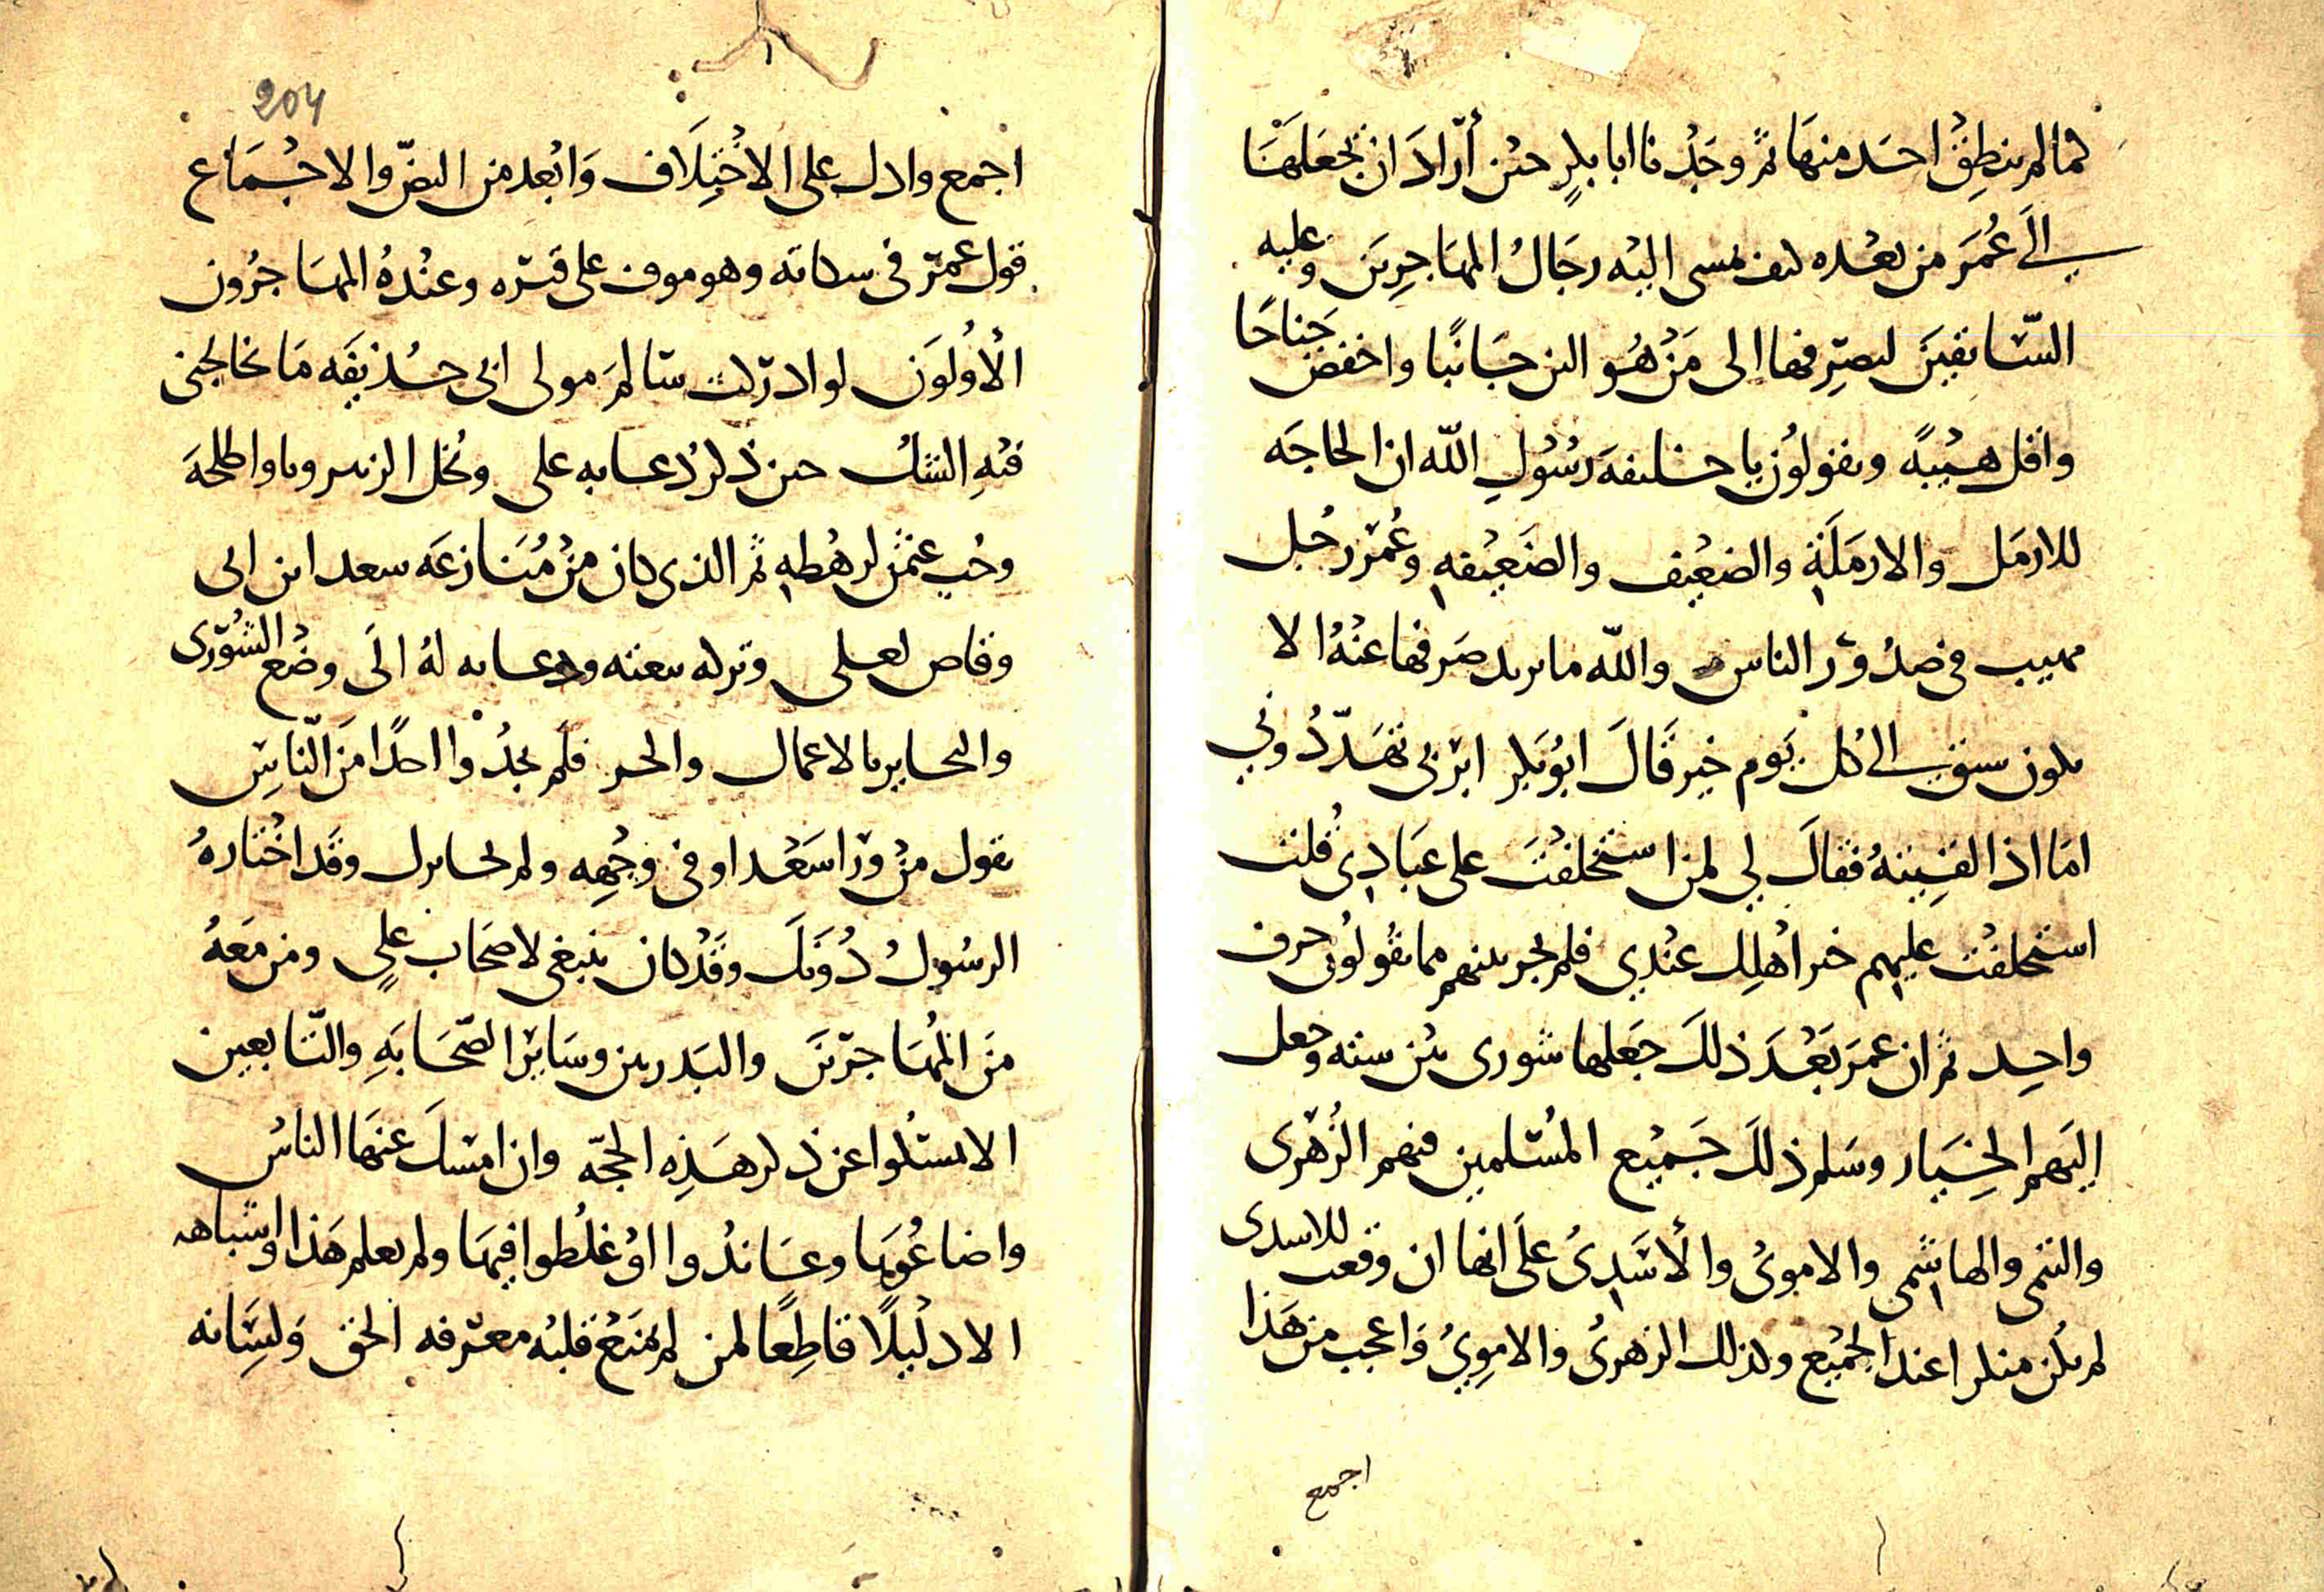 لما لم ينطق احد منها ثم وجدنا ابا بكر حين أراد ان يجعلها
الى عمر من بعده كيف مشى اليه رجال المهاجرين وعليه
السابقين ليصرفها الى من هو الين جانبا واخفض جناحا
واقل هيبة ويقولون يا خليفة رسول الله ان الحاجه
للارمل والارملة والضعيف والضعيفه وعمر رجل
مهيب في صدور الناس والله ما يريد صرفها عنه الا
يكون سبق الى كل يوم خير قال ابو بكر ابربي تهددوني
اما اذا لقيته فقال لي لمن استخلفت على عبادي قلت
استخلفت عليهم خير اهلك عندي فلم يجر بينهم مما يقولون حرف
واحد ثم ان عمر بعد ذلك جعلها شورى بين سته وجعل
اليهم الخيار وسلم ذلك جميع المسلمين فيهم الزهرى
والتيمى والهاشمى والاموى والأسدى على انها ان وقعت للاسدى
لم يكن منكرا عند الجميع وكذلك الزهرى والاموي واعجب من هذا
اجمع
204
اجمع وادل على الاختلاف وابعد من النص والاجماع
قول عمر في شكاته وهو موف على قبره وعنده المهاجرون
الأولون لو ادركت سالم مولى ابى حذيفه ما تخالجنى
فيه الشك حين ذكر دعابه على وبخل الزبير وباو طلحة
وحب عثمن لرهطه ثم الذى كان من منازعه سعد ابن ابى
وقاص لعلى وتركه بيعته ودعايه له الى وضع الشورى
والتحاير بالاعمال والخير فلم يجدوا احدا من الناس
يقول من ورا سعد او في وجهه ولم تحايرك وقد اختاره
الرسول دونك وقد كان ينبغى لاصحاب علي ومن معه
من المهاجرين والبدريين وساير الصحابه والتابعين
الا يمسكوا عن ذكر هذه الحجه وان امسك عنها الناس
واضاعوها وعاندوا او غلطوا فيها ولم نعلم هذا واشباهه
الا دليلا قاطعا لمن لم يمنع قلبه معرفه الحق ولسانه